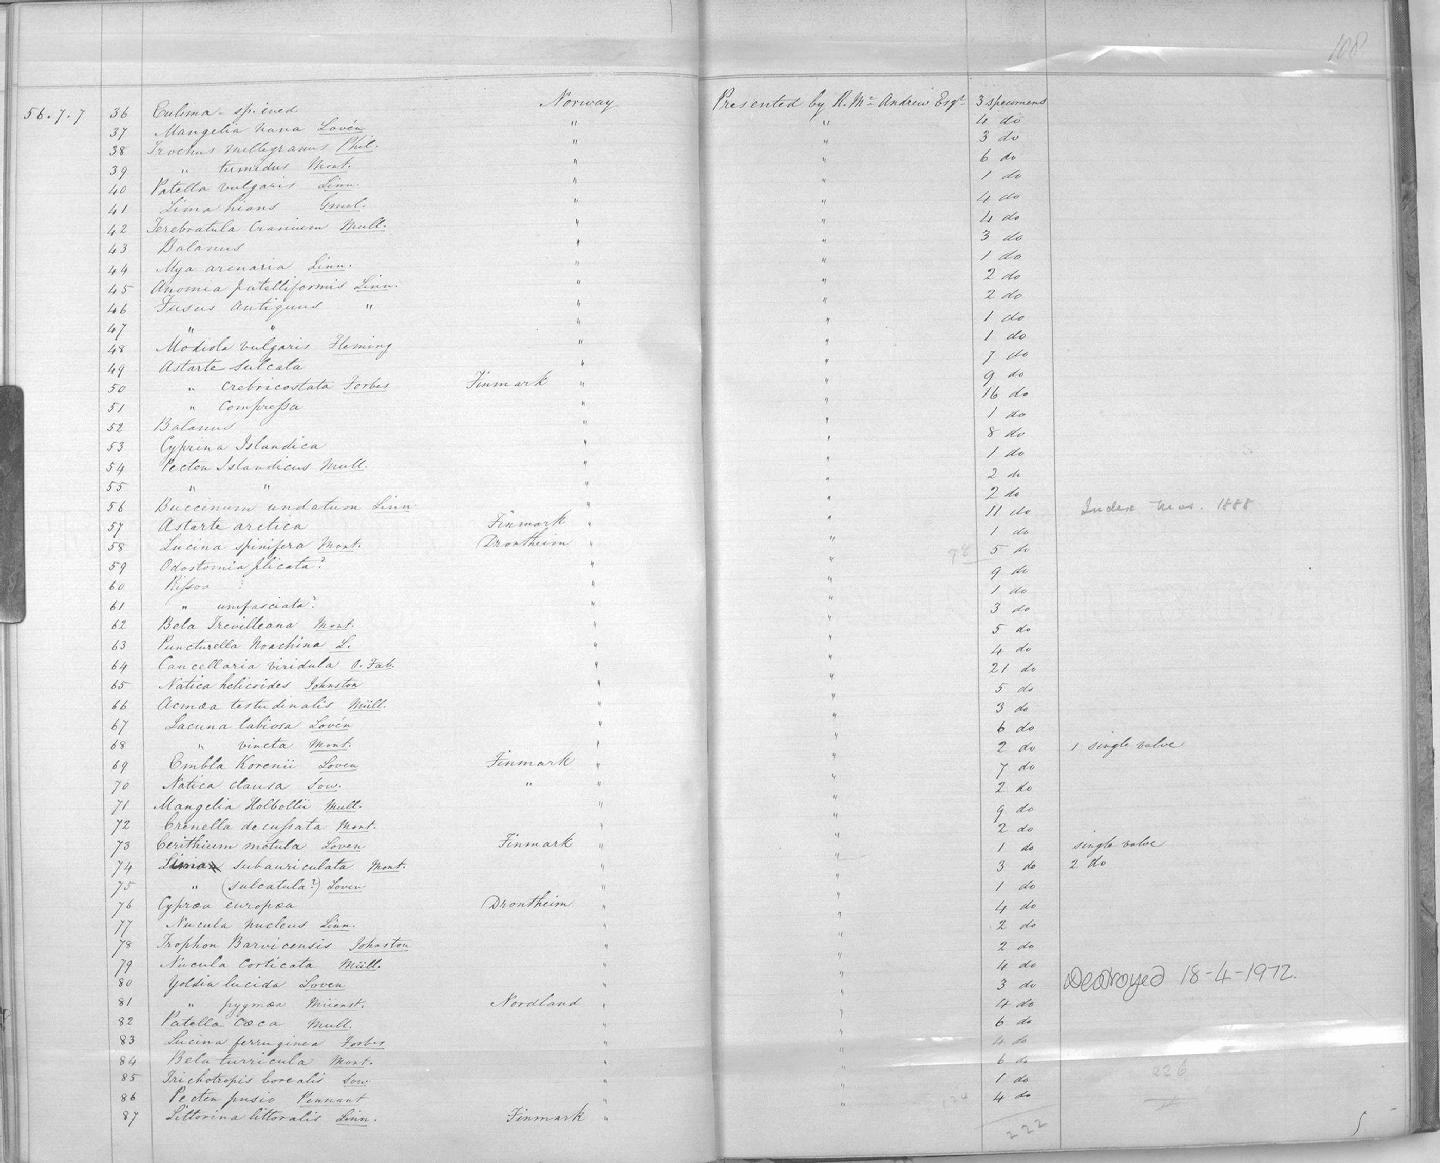 108
56.7.7 36 Eulima - spined Norway Presented by R. Mc Andrew Esqr. 3 specimens
37 Mangelia nana Lovén " " 4 do
38 Trochus millegranus Phil. " " 3 do
39 " tumidus Mont. " " 6 do
40 Patella vulgaris Linn. " " 1 do
41 Lima hians Gmel. " " 4 do
42 Terebratula Cranium Mull. " " 4 do
43 Balanus " " 3 do
44 Mya arenaria Linn. " " 1 do
45 Anomia patelliformis Linn. " " 2 do
46 Fusus Antiquus " " " 2 do
47 " " " " 1 do
48 Modiola vulgaris Fleming " " 1 do
49 Astarte Sulcata " " 7 do
50 " crebricostata Forbes Finmark " " 9 do
51 " Compressa " " 16 do
52 Balanus " " 1 do
53 Cyprina Islandica " " 8 do
54 Pecten Islandicus Mull. " " 1 do
55 " " " " 2 do
56 Buccinum undatum Linn " " 2 do
57 Astarte arctica Finmark " " 11 do Index Mos. 1888
58 Lucina spinifera Mont. Drontheim " " 1 do
59 Odostomia plicata? " " 5 do
60 Rissoa " " 9 do
61 " unifasciata? " " 1 do
62 Bela Trevilleana Mont. " " 3 do
63 Puncturella Noachina L. " " 5 do
64 Cancellaria viridula O. Fab. " " 4 do
65 Natica helicoides Johnston " " 21 do
66 Acmæa testudinalis Müll. " " 5 do
67 Lacuna labiosa Lovén " " 3 do
68 " vincta Mont. " " 6 do
69 Embla Korenii Loven Finmark " " 2 do 1 single valve
70 Natica clausa Sow. " " " 7 do
71 Mangelia Holbollii Mull. " " 2 do
72 Crenella decussata Mont. " " 9 do
73 Cerithium metula Loven Finmark " " 2 do
74 Lima subauriculata Mont. " " 1 do single valve
75 " (sulcatula?) Loven " " 3 do 2 do
76 Cypræa europæa Drontheim " " 1 do
77 Nucula nucleus Linn. " " 4 do
78 Trophon Barvicensis Johnston " " 2 do
79 Nucula Corticata Müll. " " 2 do
80 Yoldia lucida Loven " " 4 do Destroyed 18-4-1972.
81 " pygmæa Münst. Nordland " " 3 do
82 Patella Cæca Mull. " " 4 do
83 Lucina ferruginea Forbes " " 6 do
84 Bela turricula Mont. " " 4 do
85 Trichotropis borealis Sow " " 6 do
86 Pecten pusio Pennant " " 1 do
87 Littorina littoralis Linn. Finmark " " 4 do
226
222